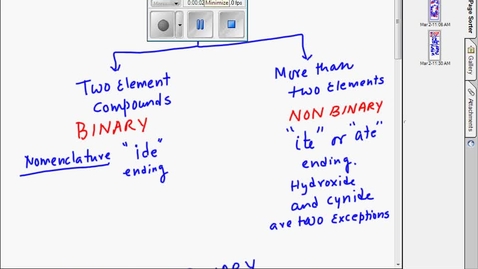 0:00:02
Minimize
0 fps
Two Element
Compounds
BINARY
Nomenclature "ide"
ending
More than
two Elements
NON BINARY
"ite" or "ate"
ending.
Hydroxide
and Cynide
are two Exceptions
BINARY
Page Sorter
Gallery
Attachments
Mar 2-11:08 AM
Mar 2-11:20 AM